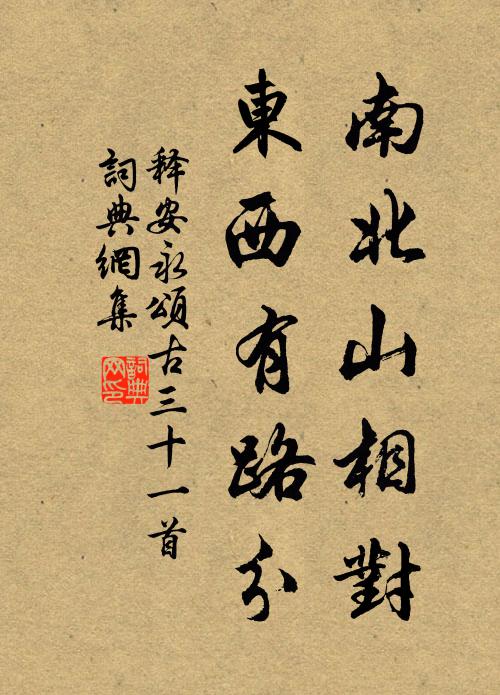 南北山相對
東西有路分
释安永頌古三十一首
詞典網集
詞典网印